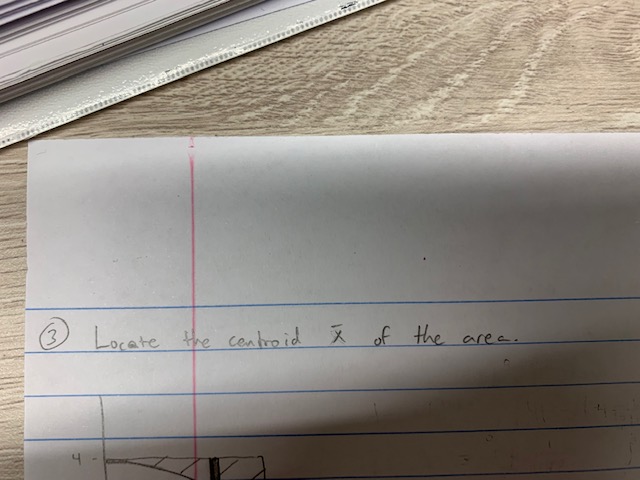 ③ Locate the centroid x̄ of the area.
4